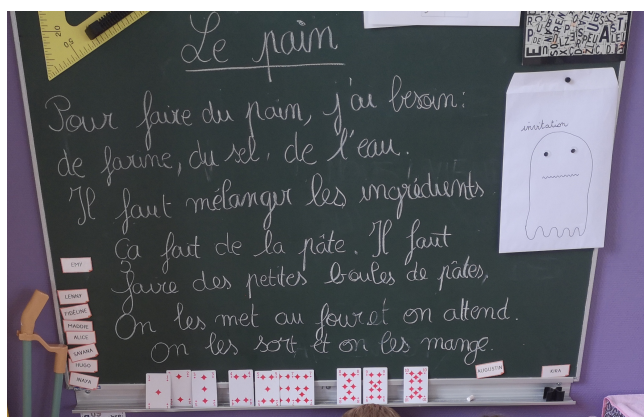 Le pain
Pour faire du pain, j'ai besoin:
de farine, du sel, de l'eau.
Il faut mélanger les ingrédients.
Ça fait de la pâte. Il faut
faire des petites boules de pâtes,
On les met au four et on attend.
On les sort et on les mange.
invitation
EMY
LENNY
FIDÉLINE
MADDIE
ALICE
SAVANA
HUGO
ANAYA
AUGUSTIN
KIRA